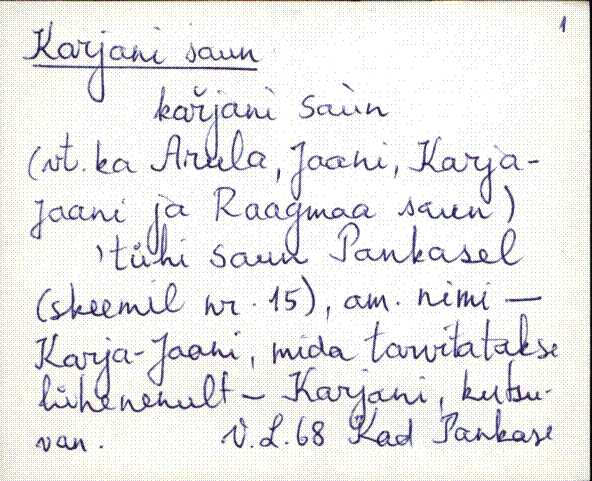 1
Karjani saun
kařjani saùn
(vt. ka Arula, Jaani, Karja-
Jaani ja Raagmaa saun)
'tühi saun Pankasel
(skeemil nr. 15), am. nimi —
Karja-Jaani, mida tarvitatakse
lühenenult – Karjani, kutsu-
van. V.L.68 Kad Pankase